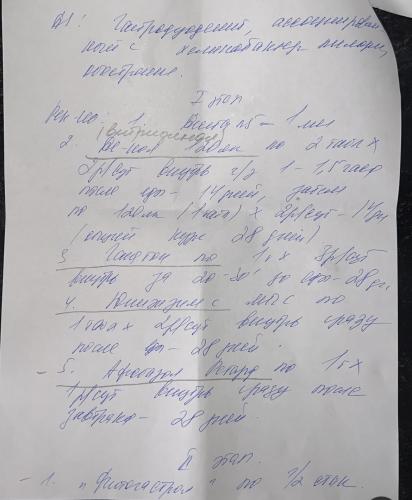 DS: Гастродуоденит, ассоциирован
ный с хеликобактер пилори,
обострение.
I этап
Рек-но: 1. Диета №5 – 1 мес
(витридинол)
2. Де-нол 120мг по 2 табл х
2р/сут внутрь ч/з 1 – 1,5 часа
после еды – 14 дней, затем
по 120мг (1 табл) х 2р/сут – 14 дн
(общий курс 28 дней)
3. по 1т х 3р/сут
внутрь за 20-30' до еды – 28 дн.
4. по
1 табл х 2р/сут внутрь сразу
после еды – 28 дней.
– 5. по 1т х
1р/сут внутрь сразу после
завтрака – 28 дней.
II этап.
– 1. "Фитогастрол" по 1/2 стак.